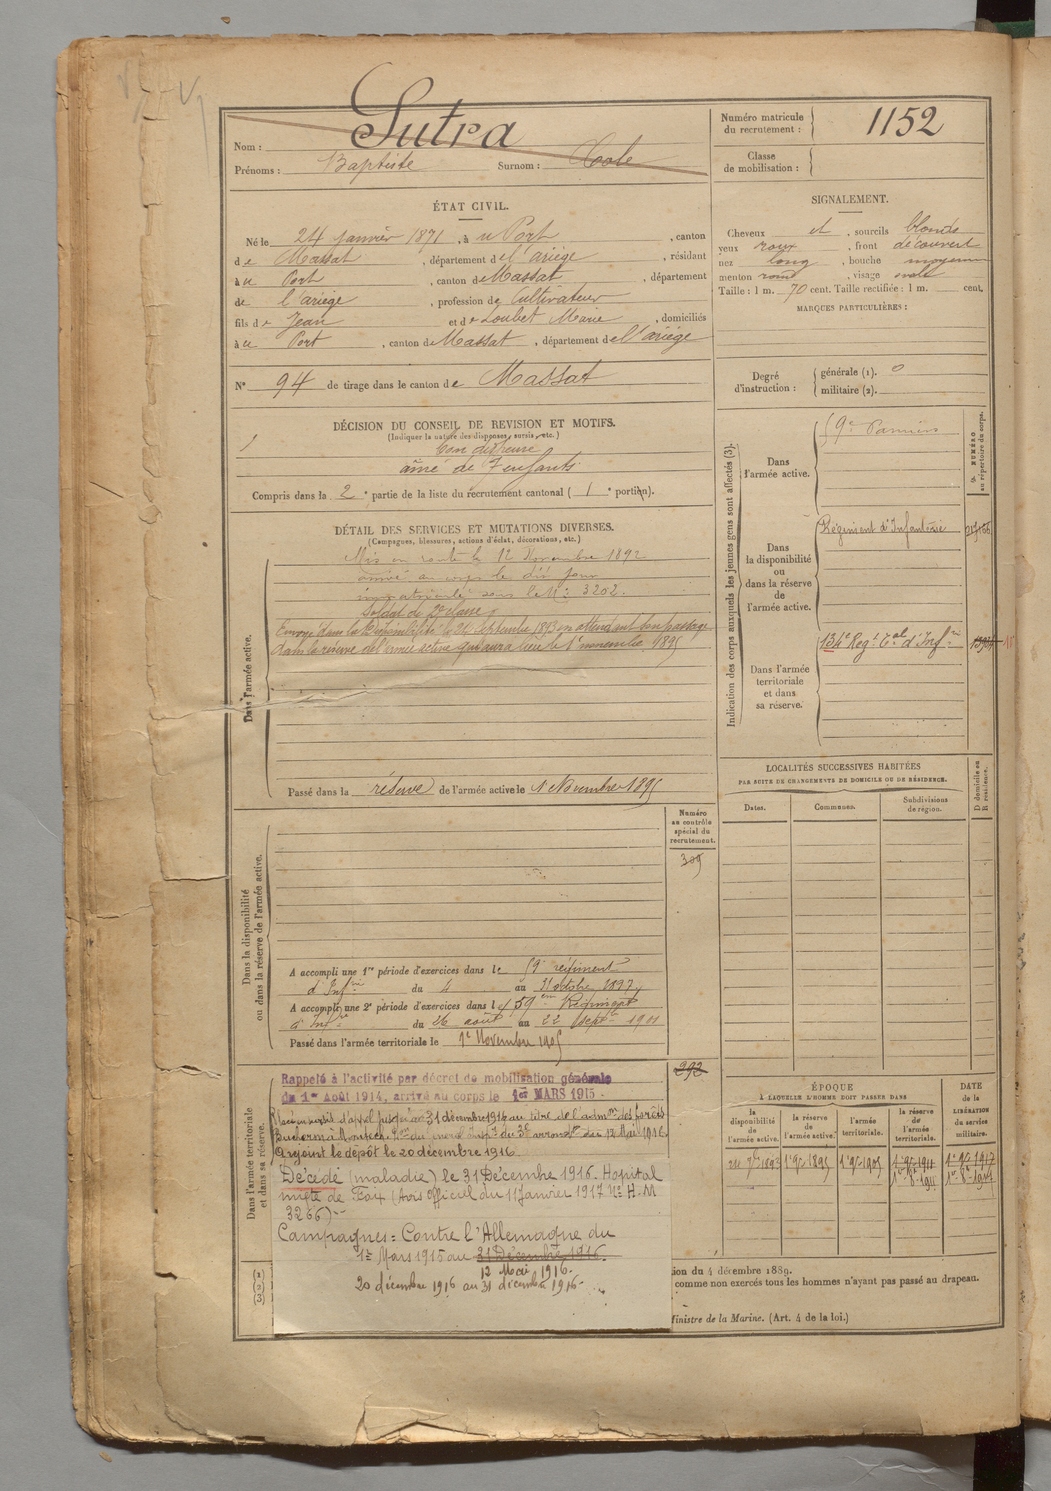 Nom : Sutra
Prénoms : Baptiste Surnom :
Numéro matricule du recrutement : 1152
Classe de mobilisation :
ÉTAT CIVIL.
Né le 24 janvier 1871, à u Port, canton
de Massat, département de l'ariège, résidant
à u Port, canton de Massat, département
de l'ariège, profession de Cultivateur
fils de Jean et de Loubet Marie, domiciliés
à u Port, canton de Massat, département de l'ariège
N° 94 de tirage dans le canton de Massat
SIGNALEMENT.
Cheveux et, sourcils blonds
yeux roux, front découvert
nez long, bouche moyenne
menton rond, visage ovale
Taille : 1 m. 70 cent. Taille rectifiée : 1 m. cent.
MARQUES PARTICULIÈRES :
Degré d'instruction : générale (1). 0
militaire (2).
DÉCISION DU CONSEIL DE REVISION ET MOTIFS.
(Indiquer la nature des dispenses, sursis, etc.)
1
bon dispensé
aîné de 7 enfants
Compris dans la 2e partie de la liste du recrutement cantonal (1e portion).
DÉTAIL DES SERVICES ET MUTATIONS DIVERSES.
(Campagnes, blessures, actions d'éclat, décorations, etc.)
Dans l'armée active.
Mis en route le 12 Novembre 1892
arrivé au corps le dit jour
immatriculé sous le N°: 3202.
Soldat de 2e classe
Envoyé dans la Disponibilité le 24 septembre 1893 en attendant son passage
dans la réserve de l'armée active qui aura lieu le 1er novembre 1895
Passé dans la réserve de l'armée active le 1 Novembre 1895
Indication des corps auxquels les jeunes gens sont affectés (3).
NUMÉRO au répertoire du corps.
Dans l'armée active.
9e Pamiers
Dans la disponibilité ou dans la réserve de l'armée active.
Régiment d'Infanterie
Dans l'armée territoriale et dans sa réserve.
134e Regt Tal d'Infrie
LOCALITÉS SUCCESSIVES HABITÉES
PAR SUITE DE CHANGEMENTS DE DOMICILE OU DE RÉSIDENCE.
Dates. Communes. Subdivisions de région. D domicile ou R résidence.
Dans la disponibilité ou dans la réserve de l'armée active.
Numéro au contrôle spécial du recrutement.
309
A accompli une 1re période d'exercices dans le 59e régiment
d'Infrie du 4 au 31 octobre 1897
A accompli une 2e période d'exercices dans le 59em Régiment
d'Infie du 26 août au 22 septre 1901
Passé dans l'armée territoriale le 1er Novembre 1905
292
Dans l'armée territoriale et dans sa réserve.
Rappelé à l'activité par décret de mobilisation générale
du 1er Août 1914, arrivé au corps le 1er MARS 1915.
sursis d'appel jusqu'au 31 décembre 1916 au titre de l'admon des forêts
du 12 Mai 1916.
A rejoint le dépôt le 20 décembre 1916.
Décédé (maladie) le 31 Décembre 1916. Hopital
mixte de Foix (Avis Officiel du 11 Janvier 1917 N° H.M
3266)
Campagnes = Contre l'Allemagne du
1er Mars 1915 au 31 Décembre 1916.
12 Mai 1916.
20 décembre 1916 au 31 décembre 1916.
ÉPOQUE
À LAQUELLE L'HOMME DOIT PASSER DANS
la disponibilité de l'armée active.
la réserve de l'armée active.
l'armée territoriale.
la réserve de l'armée territoriale.
DATE de la LIBÉRATION du service militaire.
24 7bre 1893 1er 9bre 1895 1er 9bre 1905 1er 9bre 1911 1er 9bre 1917
(1)
(2)
(3)
ion du 4 décembre 1889.
comme non exercés tous les hommes n'ayant pas passé au drapeau.
Ministre de la Marine. (Art. 4 de la loi.)